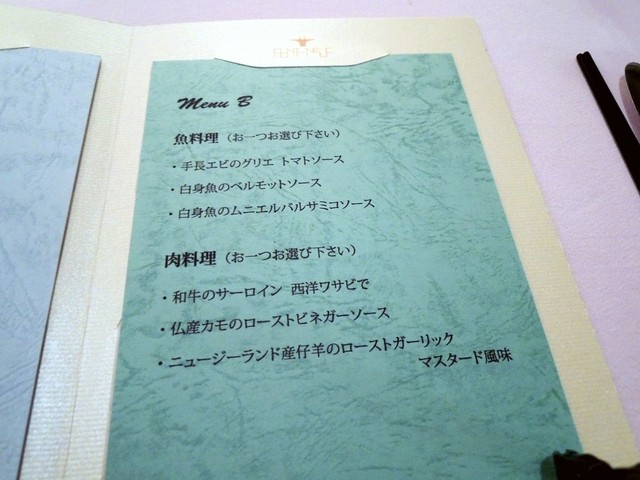 Menu B
魚料理（お一つお選び下さい）
・手長エビのグリエ トマトソース
・白身魚のベルモットソース
・白身魚のムニエルバルサミコソース
肉料理（お一つお選び下さい）
・和牛のサーロイン 西洋ワサビで
・仏産カモのローストビネガーソース
・ニュージーランド産仔羊のローストガーリック
マスタード風味